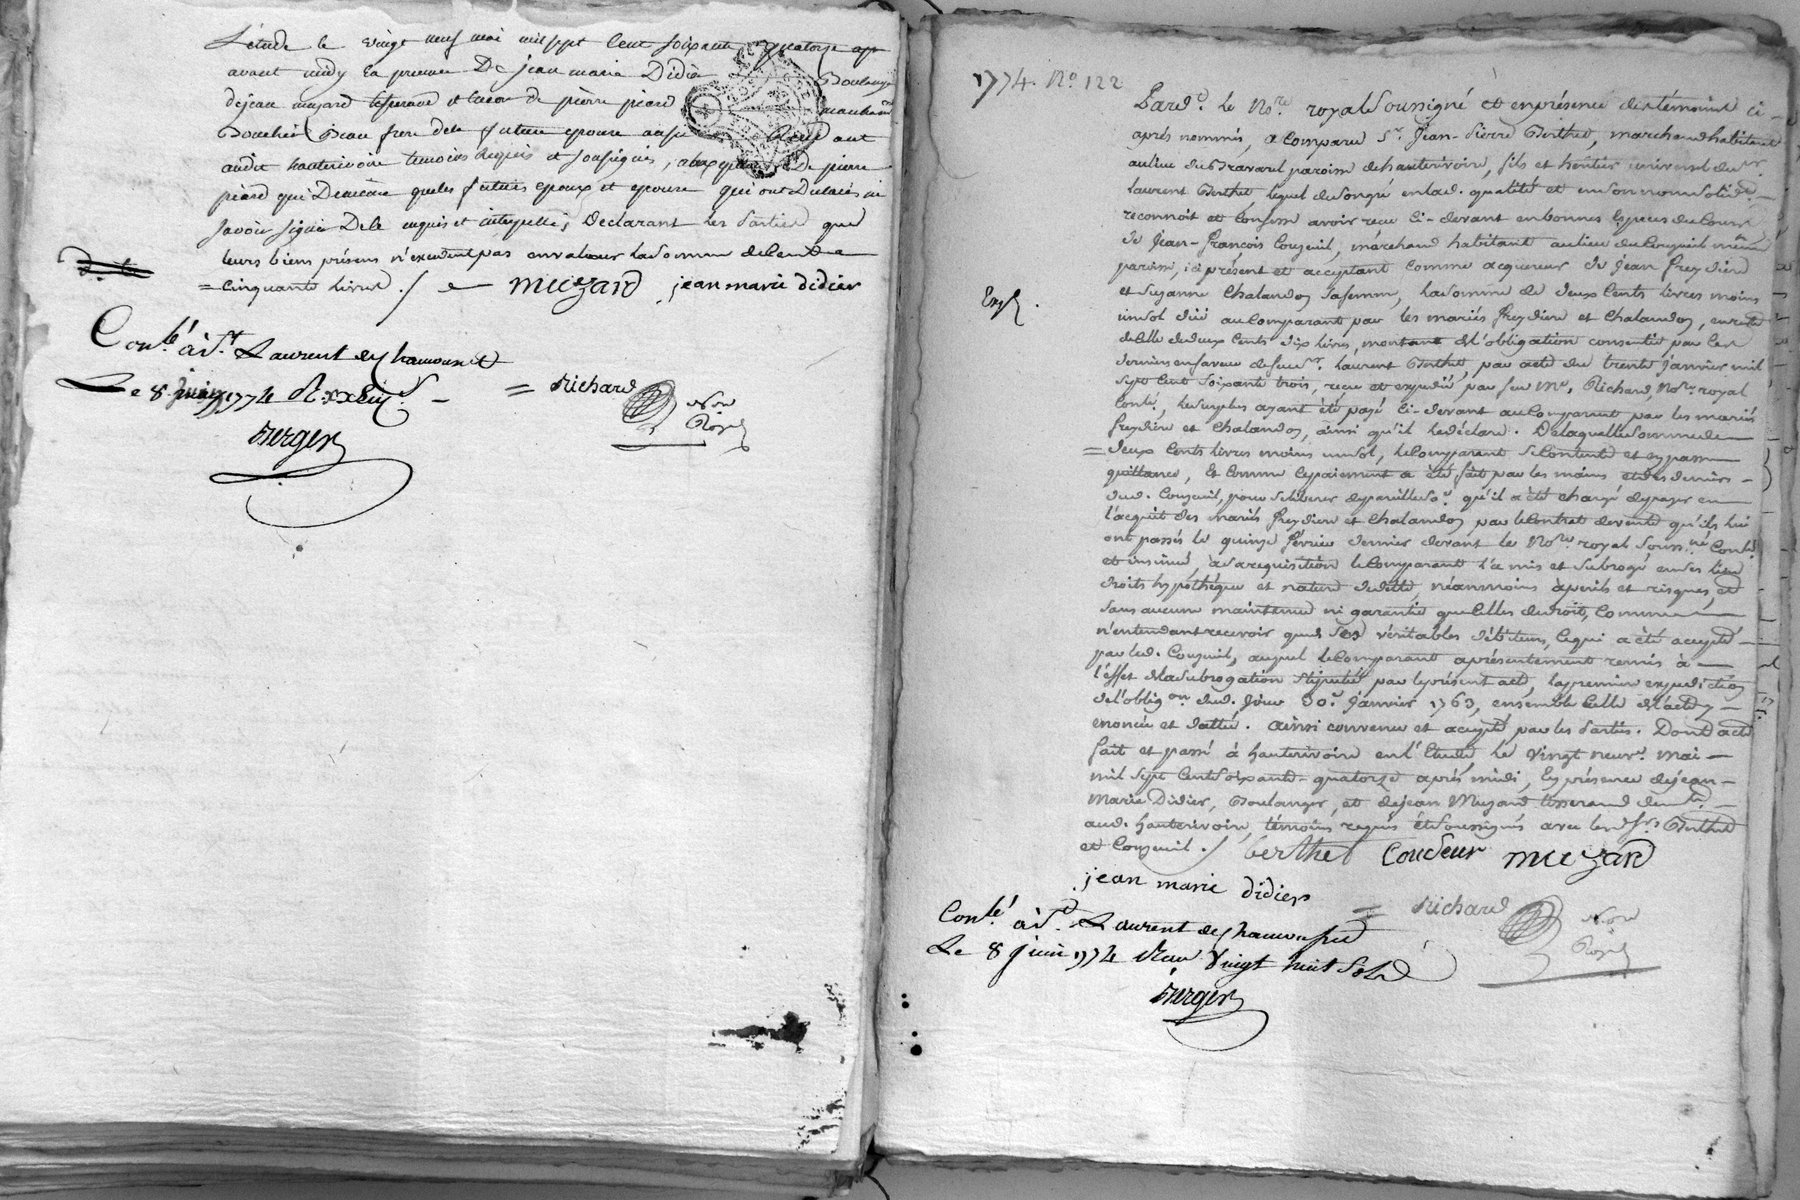 L'étude le vingt neuf mai mil sept cent soixante quatorze ap
avant midy En presence De jean marie Didier Boulanger
dejean muzard tisserand et encor de pierre picard marchand
Boucher Beau frere dela future epouse aussi
audit hauterivoire temoins Requis et soussignés, a l'exception de pierre
picard qui De meme que les futurs epoux et epouse qui ont Declarés ne
savoir signer De ce enquis et interpellé, Declarant les Parties que
leurs biens présens n'excedent pas en valeur la somme de cent
= cinquante livres ./. muzard jean marie didier
Conlé à St. Laurent de Chamousset
Le 8 juin 1774
= Richard
Nore
Royal
Berger
1774. No. 122
Pardt. le Nore. royal soussigné et en présence des témoins ci-
après nommés, a comparu Sr. Jean-Pierre Berthet, marchand habitant
au lieu du Bravard paroisse de hauterivoire, fils et héritier universel de
Laurent Berthet, lequel de son gré en lad. qualité et en son nom
reconnoit et confesse avoir reçu ci-devant en bonnes espèces du cours
de Jean-françois Couzeuil, marchand habitant au lieu du Couzeuil même
paroisse, ici présent et acceptant comme acquereur de Jean freydiere
Exp.
et Suzanne Chalandon sa femme, la somme de deux cents livres moins
un sol due au comparant par les mariés freydiere et Chalandon, en reste
de celle de deux cents dix livres, montant de l'obligation consentie par ces
derniers en faveur de feu sr. Laurent Berthet, par acte du trente Janvier mil
sept cent soixante trois, reçu et expedié par feu Me. Richard, Nore. royal
Conlé, le surplus ayant été payé ci-devant au comparant par les mariés
freydiere et Chalandon, ainsi qu'il le déclare. De laquelle somme de
= deux cents livres moins un sol, le comparant se contente et en passe
quittance, Et comme ce paiement a été fait par les mains et des deniers
dud. Couzeuil, pour se liberer de pareille so. qu'il a été chargé de payer en
l'acquit des mariés freydiere et Chalandon par le contrat de vente qu'ils lui
ont passés le quinze février dernier devant le Nore royal souss.né Conlé
et insinué, à sa requisition le comparant l'a mis et subrogé en ses lieu
droits hypothèque et nature de dette, néanmoins à perils et risques, et
sans aucune maintenue ni garantie que celles de droit, comme
n'entendant recevoir que des véritables débiteurs, ce qui a été accepté
par led. Couzeuil, auquel le comparant a présentement remis à
l'effet de la subrogation stipulée par le présent acte, la premiere expedition
de l'obligon. dud. jour 30e. Janvier 1763, ensemble celle de l'acte y
enoncée et dattée. ainsi convenu et accepté par les Parties. Dont acte
fait et passé à hauterivoire en l'Etude, le vingt neuf. mai
mil sept cent soixante-quatorze après midi, En présence de jean-
Marie Didier, Boulanger, et de jean Muzard tisserand demts.
aud. hauterivoire, témoins requis et soussignés avec lesd. srs. Berthet
et Couzeuil ./. berthet Couseur muzard
jean marie didier
= Richard
Nore
Royal
Conlé à St. Laurent de Chamousset
Le 8 juin 1774 Reçu Vingt huit sols
Berger